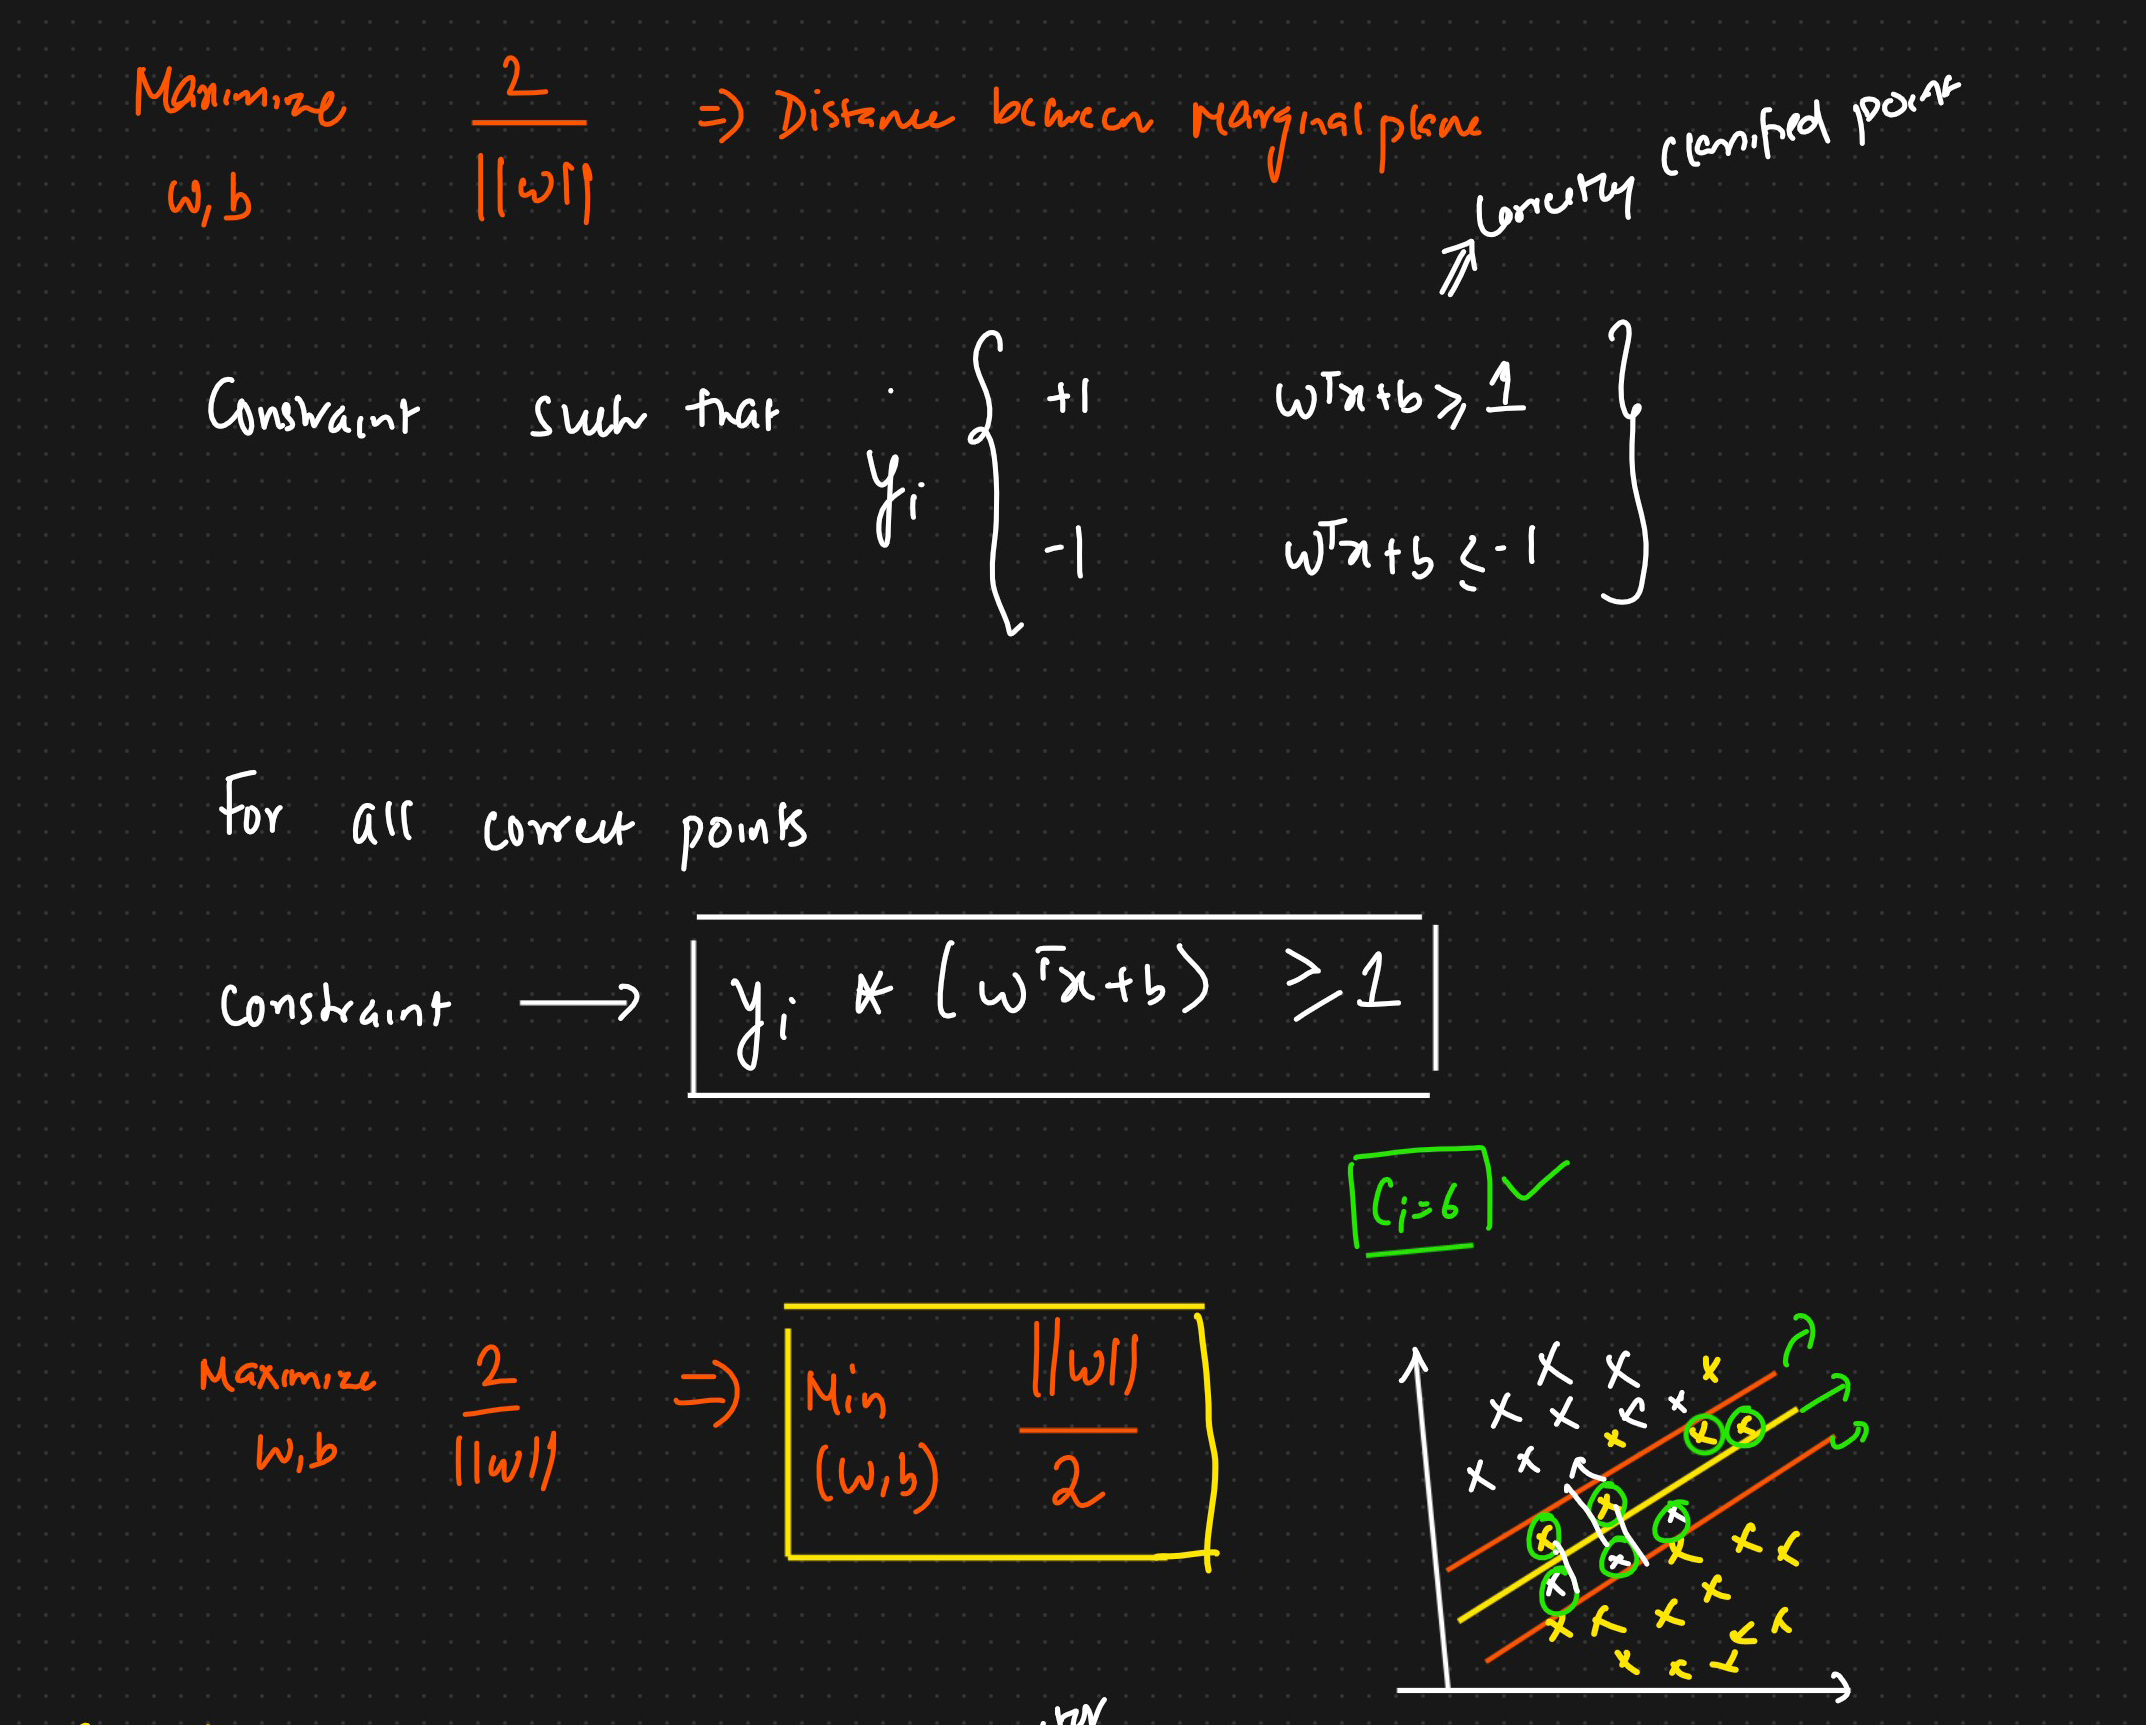 Maximize 2/||w|| ⇒ Distance between Marginal plane
w,b
Correctly classified point
Constraint such that yi { +1 wᵀx+b ≥ 1
-1 wᵀx+b ≤ -1 }
For all correct points
Constraint → yi * (wᵀx+b) ≥ 1
Ci=6 ✓
Maximize 2/||w|| ⇒ Min ||w||/2
w,b (w,b)